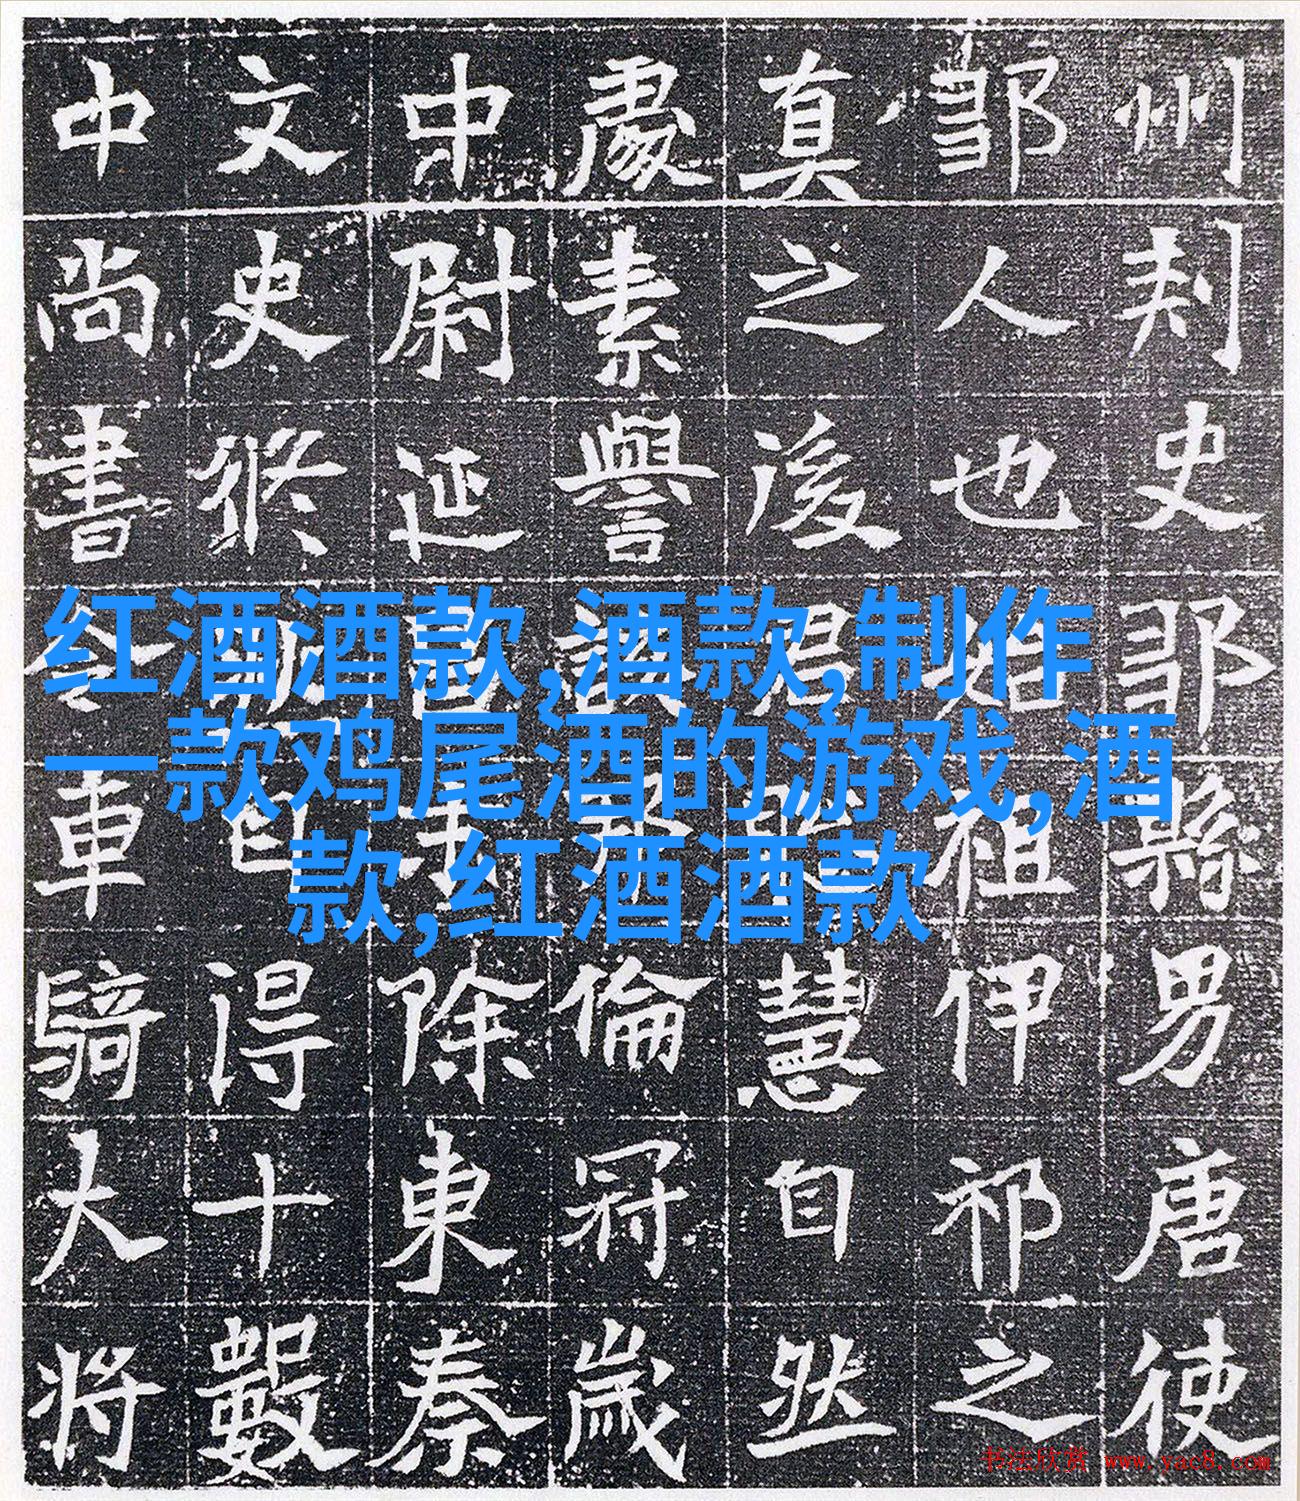 州刾史鄒縣男唐使
鄒人也始祖伊祁之
真之後君慧自然
處素譽倫冠歲
中尉延昌除東秦
文史修得十數
中尚書令車騎大將
红酒酒款,酒款,制作
一款鸡尾酒的游戏,酒
款,红酒酒款
书法欣赏 www.yac8.com